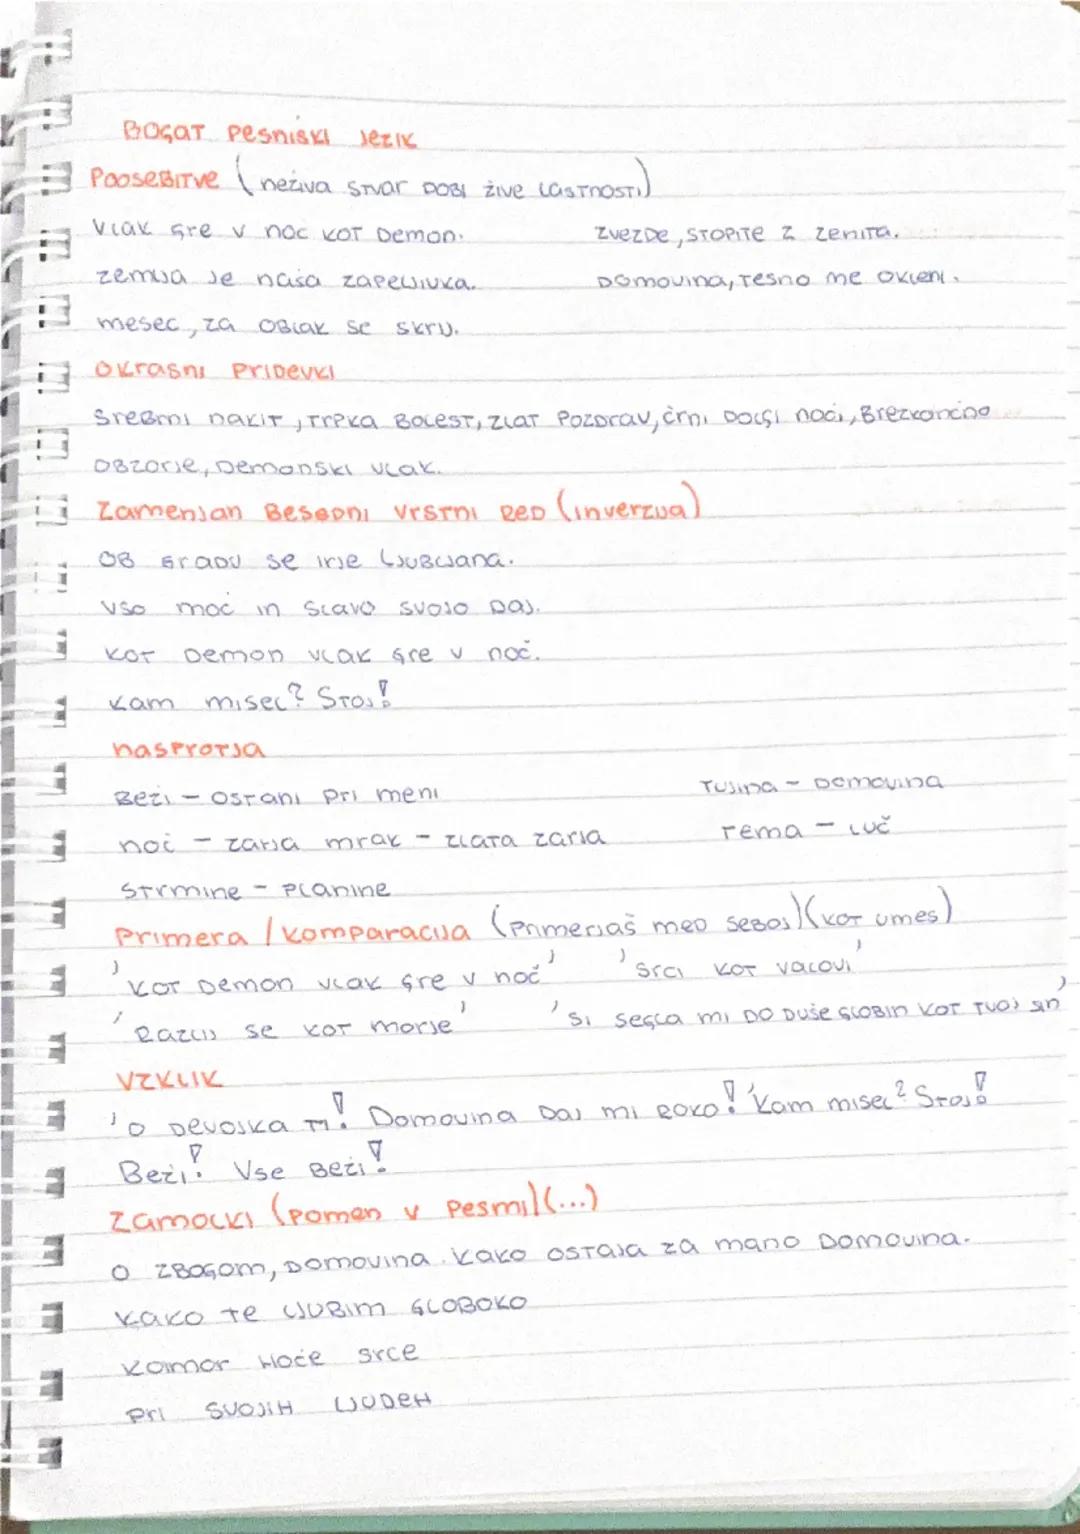 BOGAT PESNIŠKI JEZIK
POOSEBITVE (neživa stvar dobi žive lastnosti)
Vlak gre v noč kot demon. Zvezde, stopite z zenita.
Zemlja je naša zapeljivka. Domovina, tesno me okleni.
Mesec, za oblak se skrij.
OKRASNI PRIDEVKI
Srebrni nakit, trpka bolest, zlat pozdrav, črni dolgi noči, brezkončno
obzorje, demonski vlak.
Zamenjan besedni vrstni red (inverzija)
Ob gradu se irje Ljubljana.
Vso moč in slavo svojo daj.
Kot demon vlak gre v noč.
Kam misel? Stoj!
nasprotja
Beži – ostani pri meni Tujina – domovina
noč – zarja mrak – zlata zarja tema – luč
Strmine – planine
Primera / komparacija (primerjaš med seboj) (kot umes)
'Kot demon vlak gre v noč' 'Srci kot valovi'
'Razlij se kot morje' 'si segla mi do duše globin kot tvoj sin'
VZKLIK
'O devojka ti! Domovina daj mi roko! 'Kam misel? Stoj!
Beži! Vse beži!
Zamolki (pomen v pesmi) (...)
O zbogom, domovina. Kako ostaja za mano domovina.
Kako te ljubim globoko
Kamor hoče srce
Pri svojih ljudeh